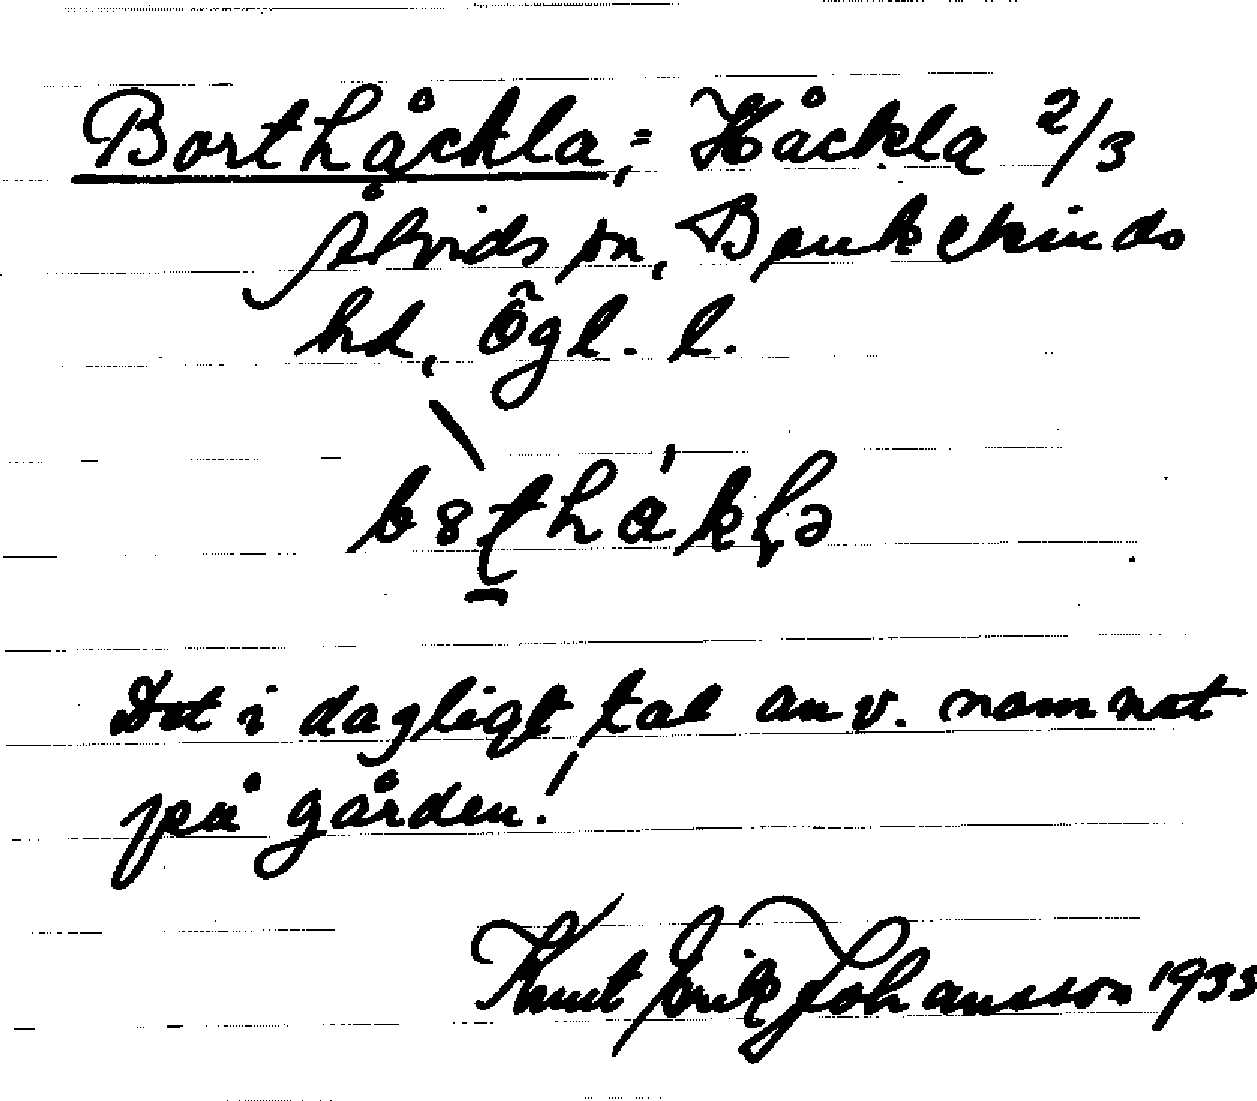 Borthåckla,= Håckla 2/3
Åtvids sn, Bankekinds
hd, Ögl. l.
Det i dagligt tal anv. namnet
på gården!
Knut Erik Johansson 1933